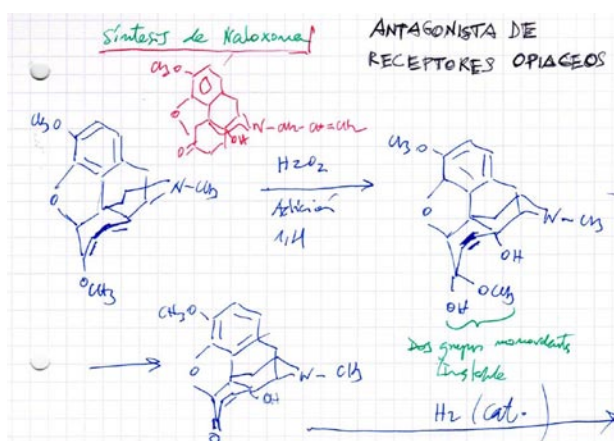 Síntesis de Naloxona
ANTAGONISTA DE
RECEPTORES OPIACEOS
CH3O
O
N-CH2-CH=CH2
OH
O
CH3O
O
N-CH3
OCH3
H2O2
Adición
1,4
CH3O
O
N-CH3
OH
OCH3
OH
Dos grupos
Inestable
CH3O
O
N-CH3
OH
O
H2 (cat.)